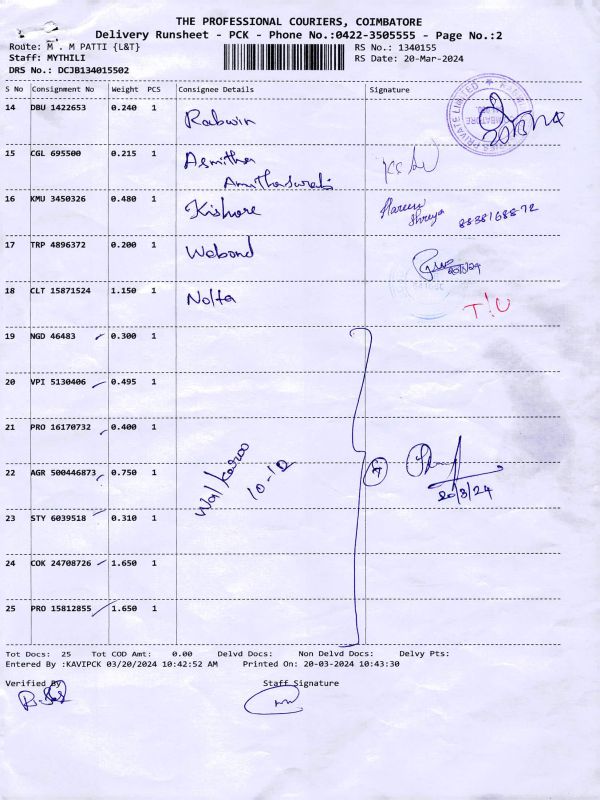 THE PROFESSIONAL COURIERS, COIMBATORE
Delivery Runsheet - PCK - Phone No.:0422-3505555 - Page No.:2
Route: M . M PATTI {L&T} RS No.: 1340155
Staff: MYTHILI RS Date: 20-Mar-2024
DRS No.: DCJB134015502
S No Consignment No Weight PCS Consignee Details Signature
14 DBU 1422653 0.240 1 Rabwin
15 CGL 695500 0.215 1 Asmitha
16 KMU 3450326 0.480 1 Kishore 8838168872
17 TRP 4896372 0.200 1 Webond 20/3/24
18 CLT 15871524 1.150 1 Nolta
19 NGD 46483 0.300 1
20 VPI 5130406 0.495 1
21 PRO 16170732 0.400 1
22 AGR 500446873 0.750 1 Walkaroo 10-12 7 20/3/24
23 STY 6039518 0.310 1
24 COK 24708726 1.650 1
25 PRO 15812855 1.650 1
Tot Docs: 25 Tot COD Amt: 0.00 Delvd Docs: Non Delvd Docs: Delvy Pts:
Entered By :KAVIPCK 03/20/2024 10:42:52 AM Printed On: 20-03-2024 10:43:30
Verified By Staff Signature